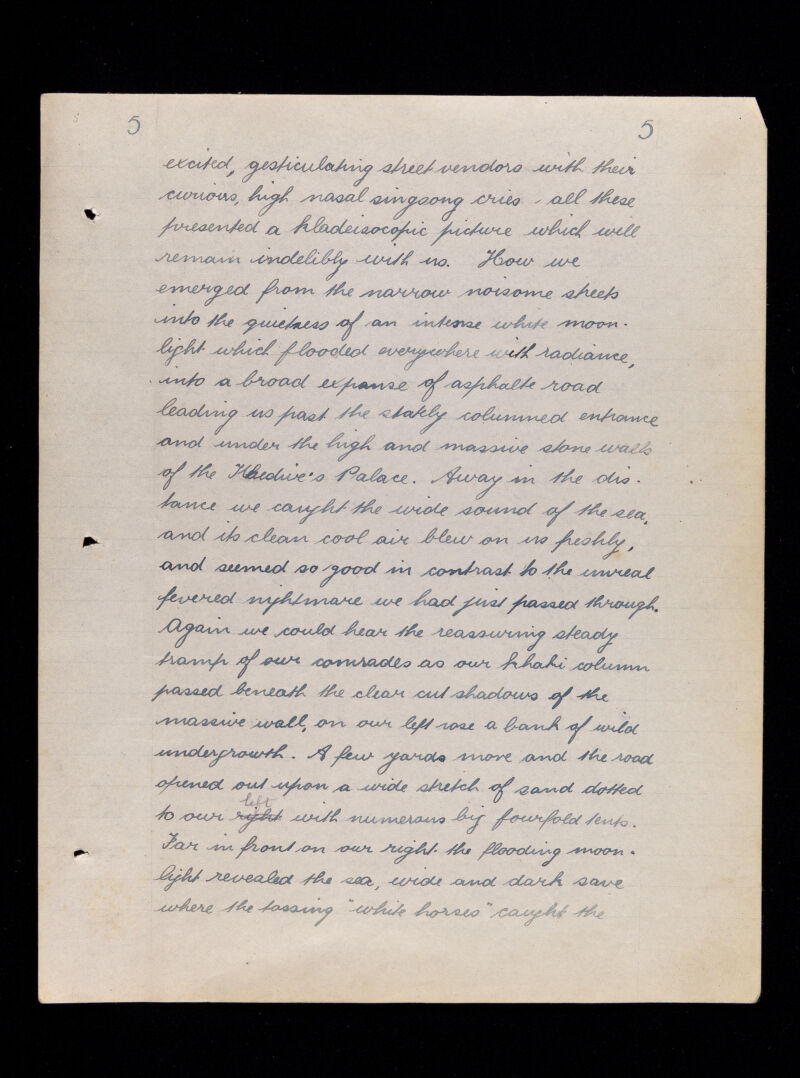 5 5
excited, gesticulating street vendors with their
curious, high nasal singsong cries - all these
presented a kladeisocopic picture which will
remain indelibly with us. How we
emerged from the narrow noisome streets
into the quietness of an intense white moon-
light which flooded everywhere with radiance,
into a broad expanse of asphalte road
leading us past the stately columned entrance
and under the high and massive stone walls
of the Khedive's Palace. Away in the dis-
tance we caught the wide sound of the sea,
and its clean cool air blew on us freshly,
and seemed so good in contrast to the unreal
fevered nightmare we had just passed through.
Again we could hear the reassuring steady
tramp of our comrades as our khaki column
passed beneath the clear cut shadows of the
massive wall, on our left rose a bank of wild
undergrowth. A few yards more and the road
opened out upon a wide stretch of sand dotted
left
to our right with numerous big fourfold tents.
Far in front on our right the flooding moon-
light revealed the sea, wide and dark save
where the tossing "white horses" caught the